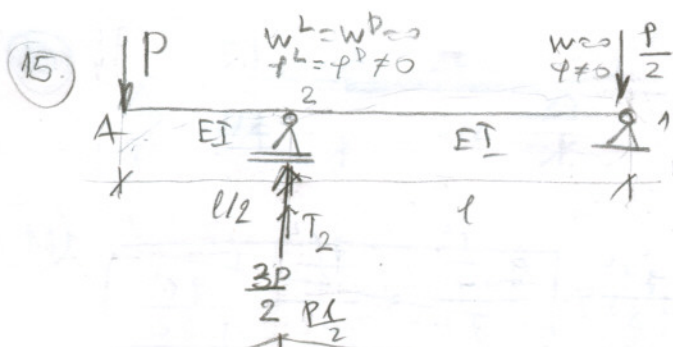 15.
P
w^L = w^D = 0
φ^L = φ^D ≠ 0
w = 0
φ ≠ 0
P/2
A
EI
2
EI
1
l/2
T₂
l
3P/2
Pl/2